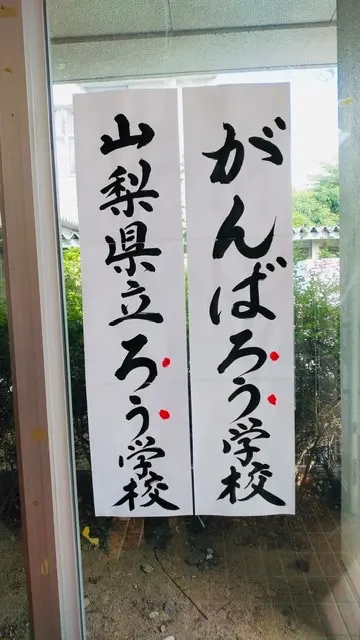 がんばろう学校
山梨県立ろう学校